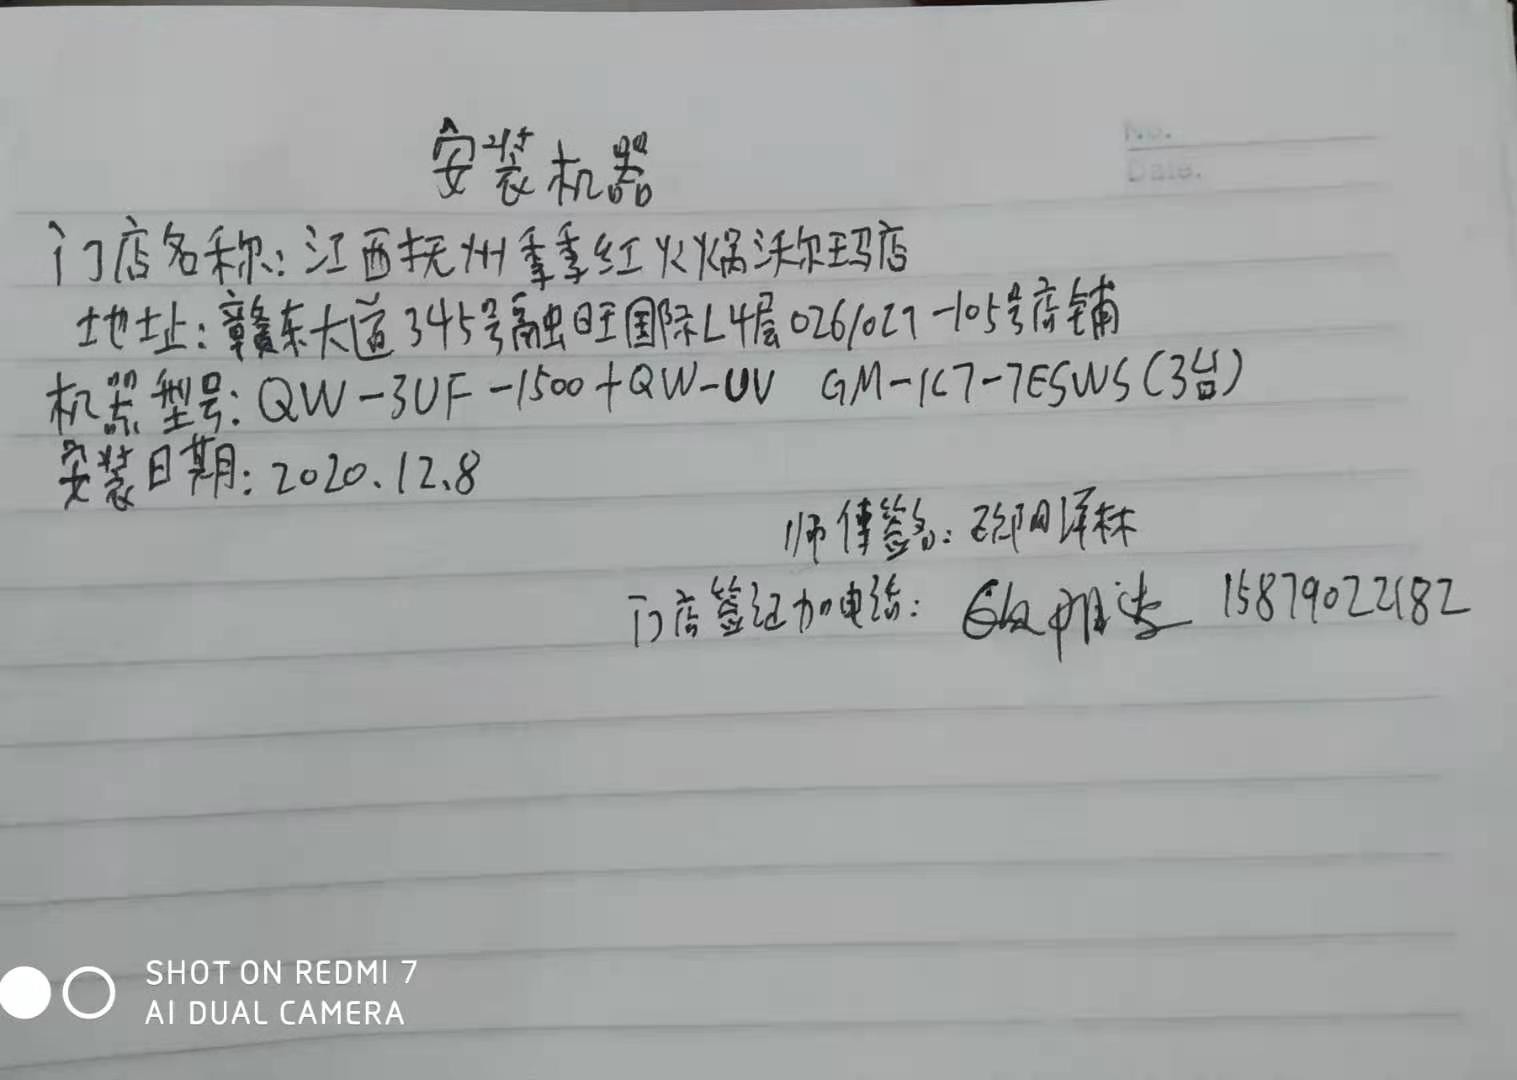 No.
Date.
安装机器
门店名称:江西抚州季季红火火锅沃尔玛店
地址:赣东大道345号融旺国际L4层026/027-105号店铺
机器型号:QW-3UF-1500+QW-UV GM-1C7-7ESWS(3台)
安装日期:2020.12.8
师傅签名:邵阳泽林
门店签证加电话: 15879022182
SHOT ON REDMI 7
AI DUAL CAMERA